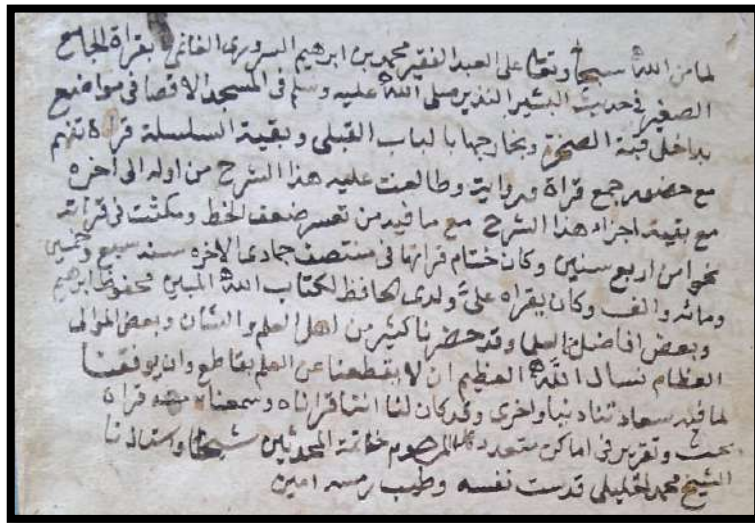 لما من الله سبحانه وتعا على العبد الفقير محمد بن ابراهيم السروري الغانمي بقراة الجامع
الصغير في حديث البشير النذير صلى الله عليه وسلم في المسجد الاقصا في مواضيع
بداخل قبة الصخرة وبخارجها بالباب القبلي وبقية السلسلة قراة تفهم
مع حضور جمع قراة ورواية وطالعت عليه هذا الشرح من اوله الى اخره
مع بقية اجزاء هذا الشرح مع ما فيه من تعسر ضعف الخط ومكثت في قراته
نحوا من اربع سنين وكان ختام قراتها في منتصف جمادى الاخره سنه سبع وخمسين
ومائه والف وكان يقراه علي ولدي الحافظ لكتاب الله المبين محفوظ ابرهيم
وبعض افاضل العلما وقد حضرنا كثير من اهل العلم والشان وبعض الموالى
العظام نسال الله العظيم ان لا يقطعنا عن العلم بقاطع وان يوفقنا
لما فيه سعادتنا دنيا واخرى وقد كان لنا اننا قراناه وسمعناه قراة
بحث وتقرير في اماكن متعدده المرحوم خاتمة المحدثين شيخنا واستادنا
الشيخ محمد الخليلي قدست نفسه وطيب رمسه امين